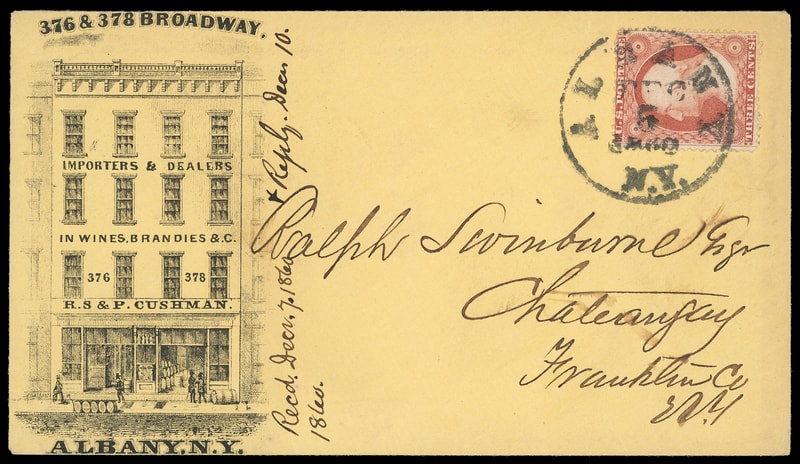 376 & 378 BROADWAY,
IMPORTERS & DEALERS
IN WINES, BRANDIES & C.
376 378
R. S & P. CUSHMAN.
ALBANY, N.Y.
Recd. Decr. 7. 1860 & Reply. Decr. 10.
1860.
U.S. POSTAGE
THREE CENTS
ALBANY
N.Y.
DEC
Ralph Swinburne Esqr
Chateaugay
Franklin Co
N.Y